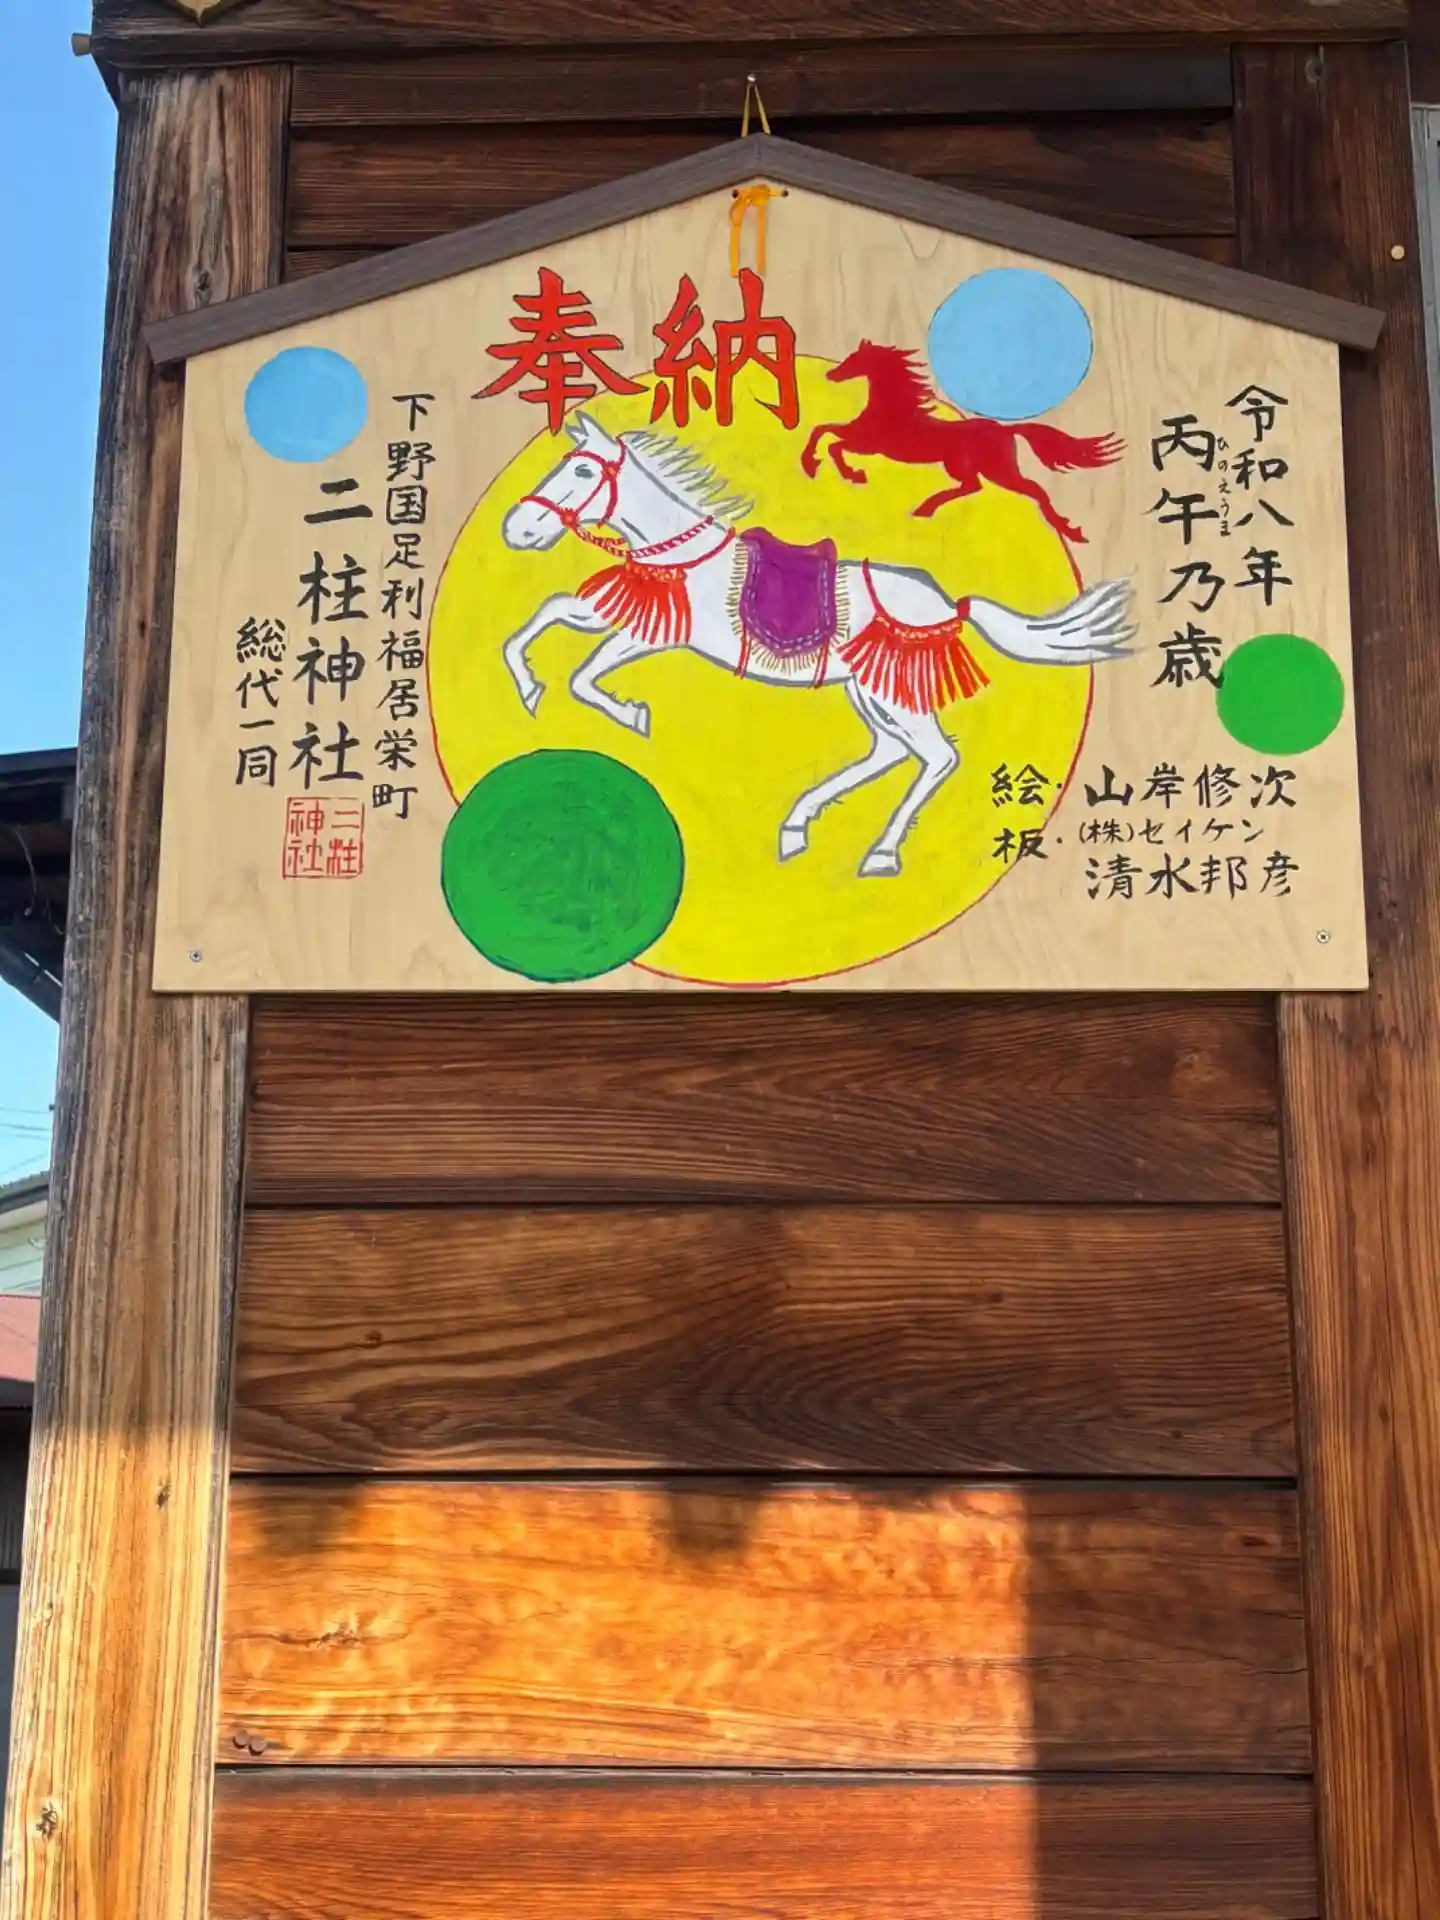 奉納
令和八年
丙午乃歳
ひのえうま
絵・山岸修次
板・(株)セイケン
清水邦彦
下野国足利福居栄町
二柱神社
総代一同
二柱
神社